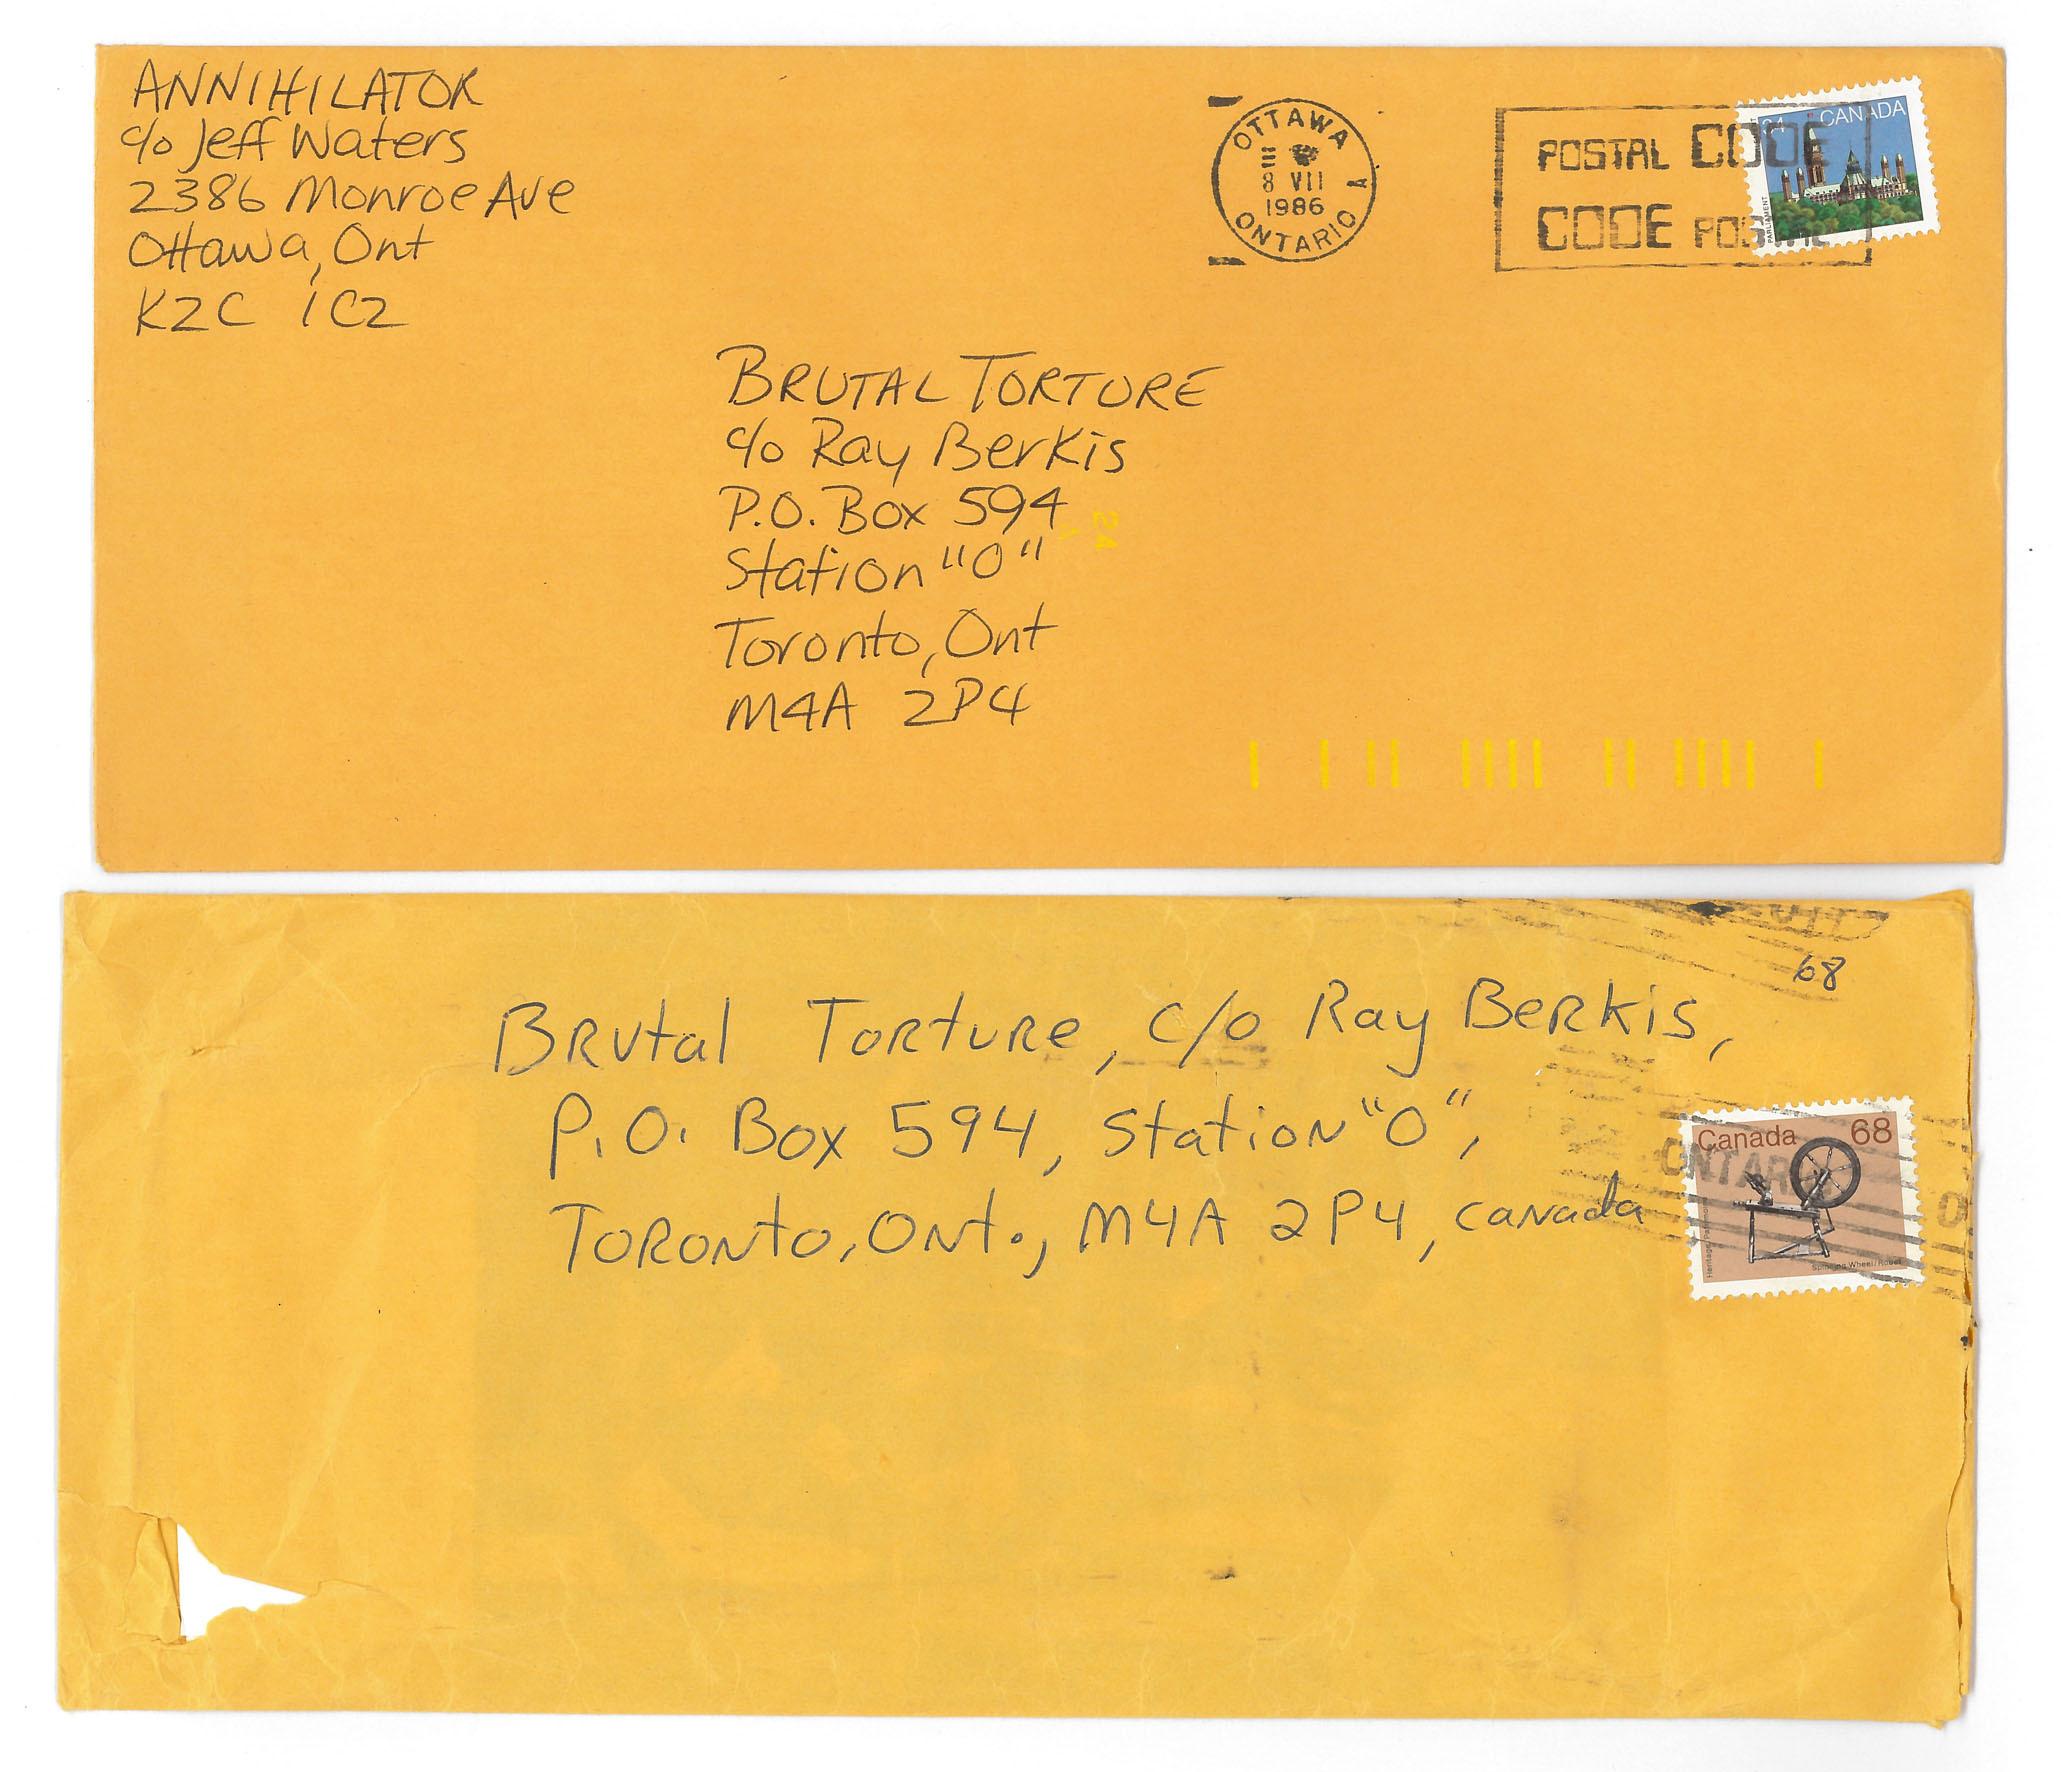 ANNIHILATOR
c/o Jeff Waters
2386 Monroe Ave
Ottawa, Ont
K2C 1C2
OTTAWA
8 VII
1986
ONTARIO
POSTAL CODE
CODE POSTAL
34 CANADA
PARLIAMENT
BRUTAL TORTURE
c/o Ray Berkis
P.O. Box 594
Station "O"
Toronto, Ont
M4A 2P4
68
Brutal Torture, c/o Ray Berkis,
P.O. Box 594, Station "O",
Toronto, Ont., M4A 2P4, Canada
Canada 68
ONTARIO
Spinning Wheel/Rouet